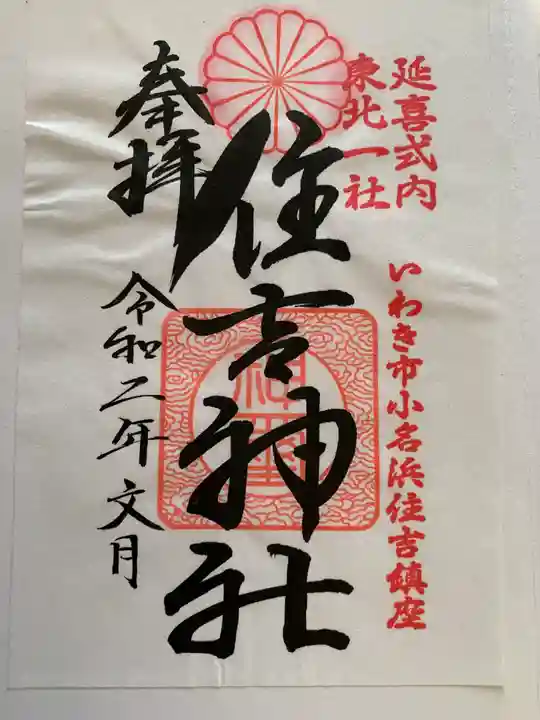 延喜式内
東北一社
いわき市小名浜住吉鎮座
住吉神社
奉拝
令和二年文月